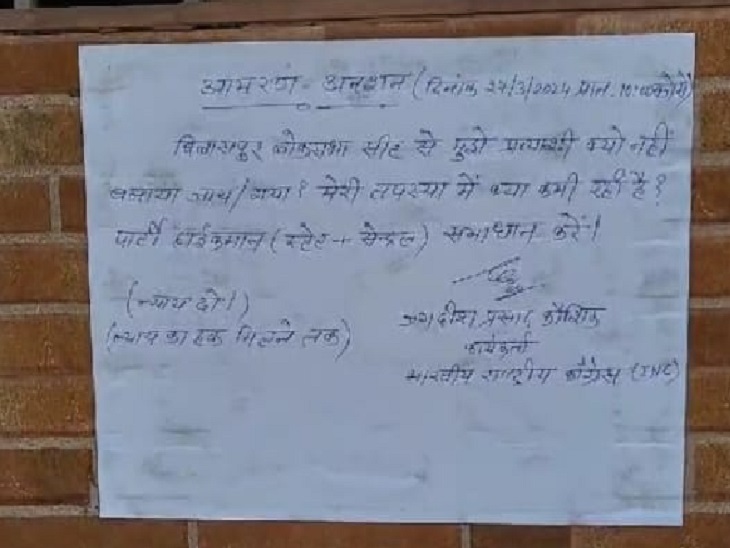 आमरण अनशन (दिनांक 27/3/2024 प्रात. 10:00 बजे से)
बिलासपुर लोकसभा सीट से मुझे प्रत्याशी क्यो नहीं
बनाया जाय/गया? मेरी तपस्या में क्या कमी रही है?
पार्टी हाईकमान (स्टेट + सेन्ट्रल) समाधान करें।
(न्याय दो।)
(न्याय का हक मिलने तक)
जगदीश प्रसाद कौशिक
कार्यकर्ता
भारतीय राष्ट्रीय काँग्रेस (INC)